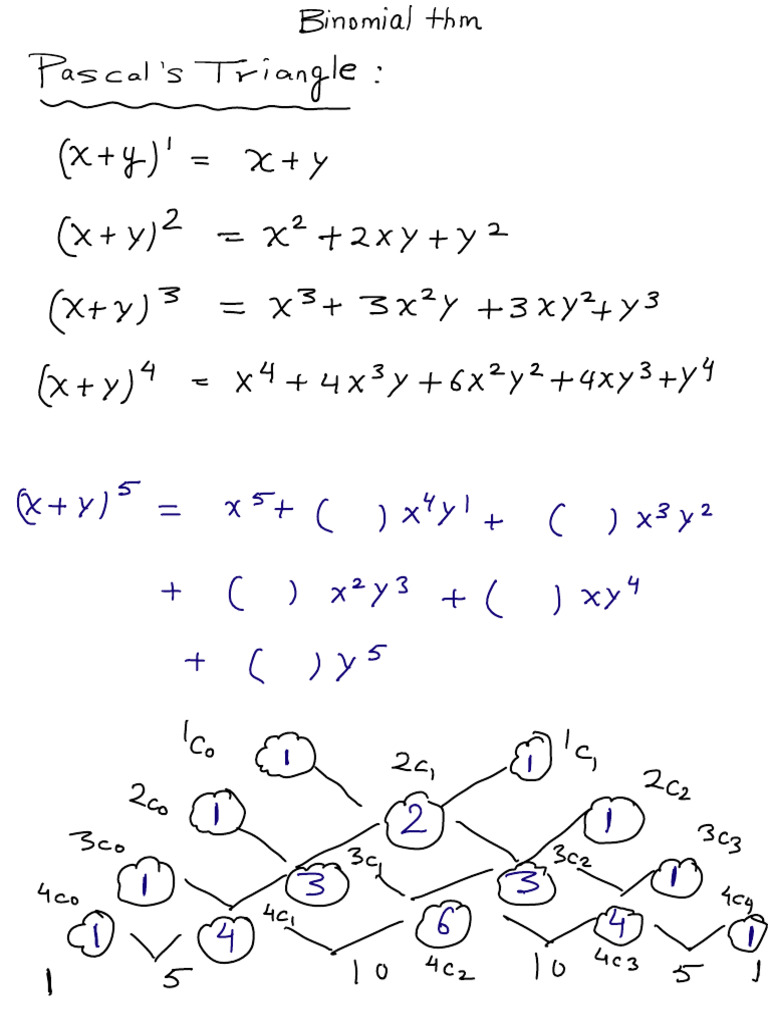 Binomial thm
Pascal's Triangle :
(x+y)¹ = x+y
(x+y)² = x² + 2xy + y²
(x+y)³ = x³ + 3x²y + 3xy² + y³
(x+y)⁴ = x⁴ + 4x³y + 6x²y² + 4xy³ + y⁴
(x+y)⁵ = x⁵ + ( ) x⁴y¹ + ( ) x³y²
+ ( ) x²y³ + ( ) xy⁴
+ ( ) y⁵
1C₀ 1 2C₁ 1 1C₁
2C₀ 1 2 1 2C₂
3C₀ 1 3 3C₁ 3 3C₂ 1 3C₃
4C₀ 1 4 4C₁ 6 4C₂ 4 4C₃ 1 4C₄
1 5 10 10 5 1